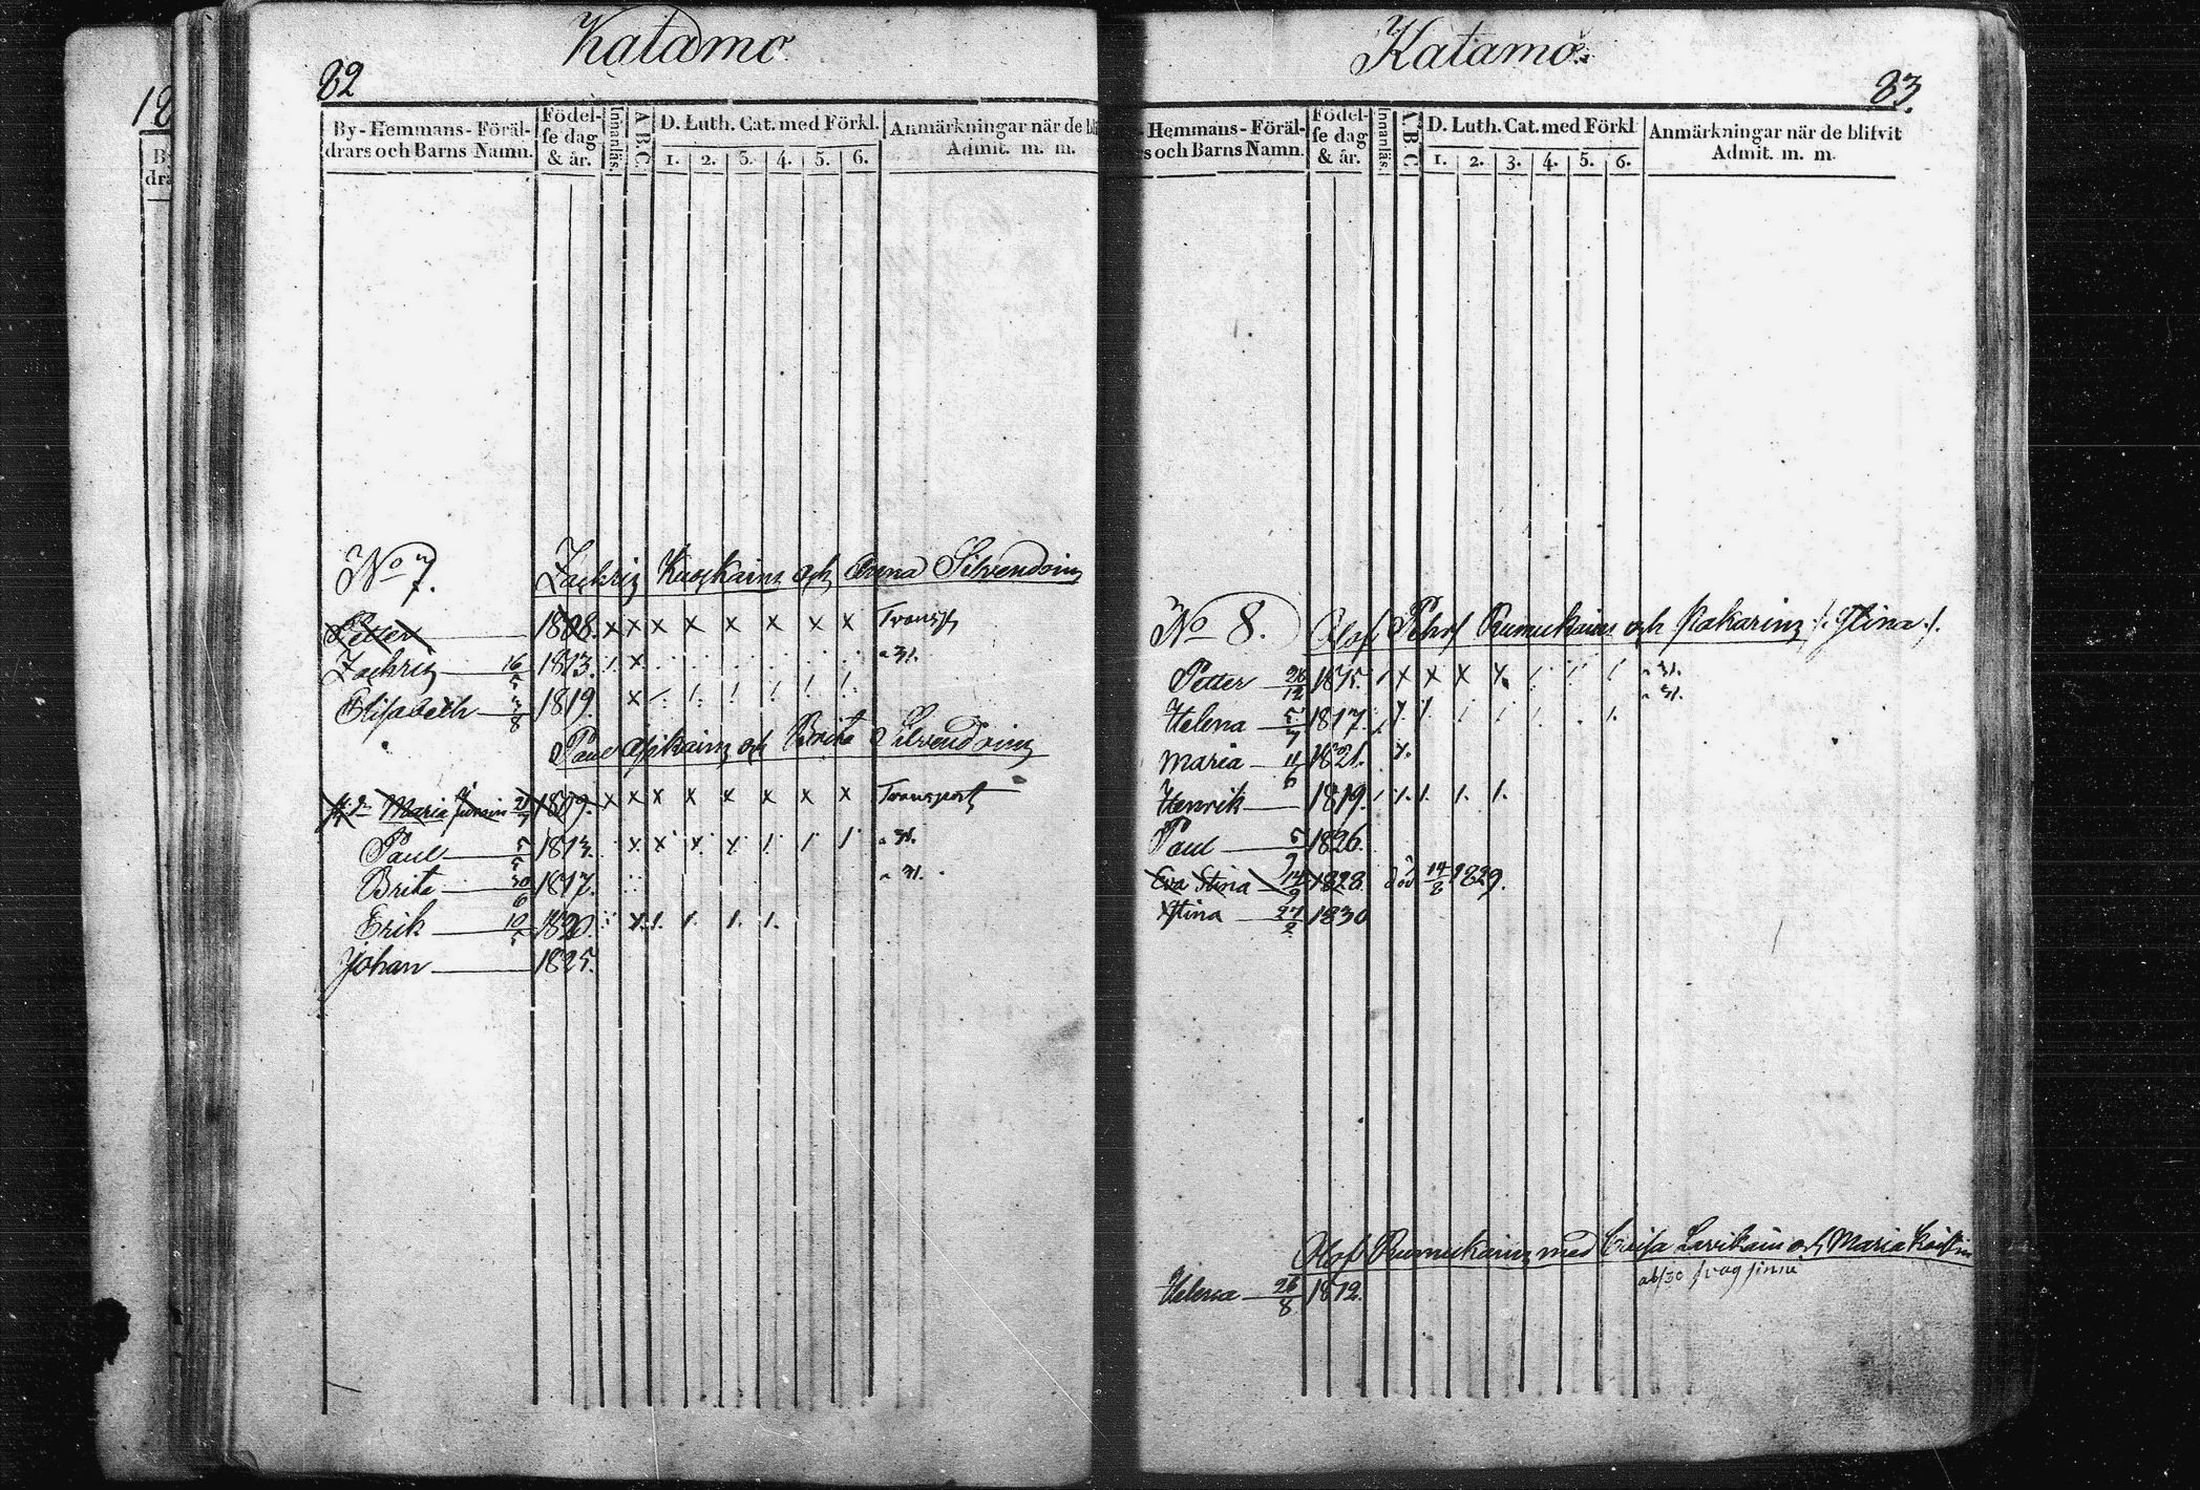 Katamo
82
By- Hemmans- Föräl-
drars och Barns Namn.
Födel-
se dag
& år.
Innanläs.
A B C.
D. Luth. Cat. med Förkl.
1. 2. 3. 4. 5. 6.
Anmärkningar när de bli
Admit. m. m.
No 7. Zachris och Anna Silvendoin
Petter 1808. x x x x x x x x Transp
Zachris 16/5 1813. x "31.
Elisabeth 3/8 1819. x
Paul och Brita Silvendoin
Maria 1809. x x x x x x x x Transport
Paul 5/5 1813. x x x x "31.
Brita 30/6 1817. "31.
Erik 10/5 1820.
Johan 1825.
Katamo.
83.
Hemmans- Föräl-
s och Barns Namn.
Födel-
se dag
& år.
Innanläs.
A B C
D. Luth. Cat. med Förkl
1. 2. 3. 4. 5. 6.
Anmärkningar när de blifvit
Admit. m. m.
No 8. Olof Rumukain och Kakarin /. Stina ./.
Petter 26/12 1815. x x x x "31.
Helena 5/7 1817. "31.
Maria 11/6 1821.
Henrik 1819.
Paul 5/9 1826.
Eva Stina 14/9 1828. död 14/8 1829.
Stina 27/2 1830
Olof Rumukain med Caisa och Maria
Helena 26/8 1812.